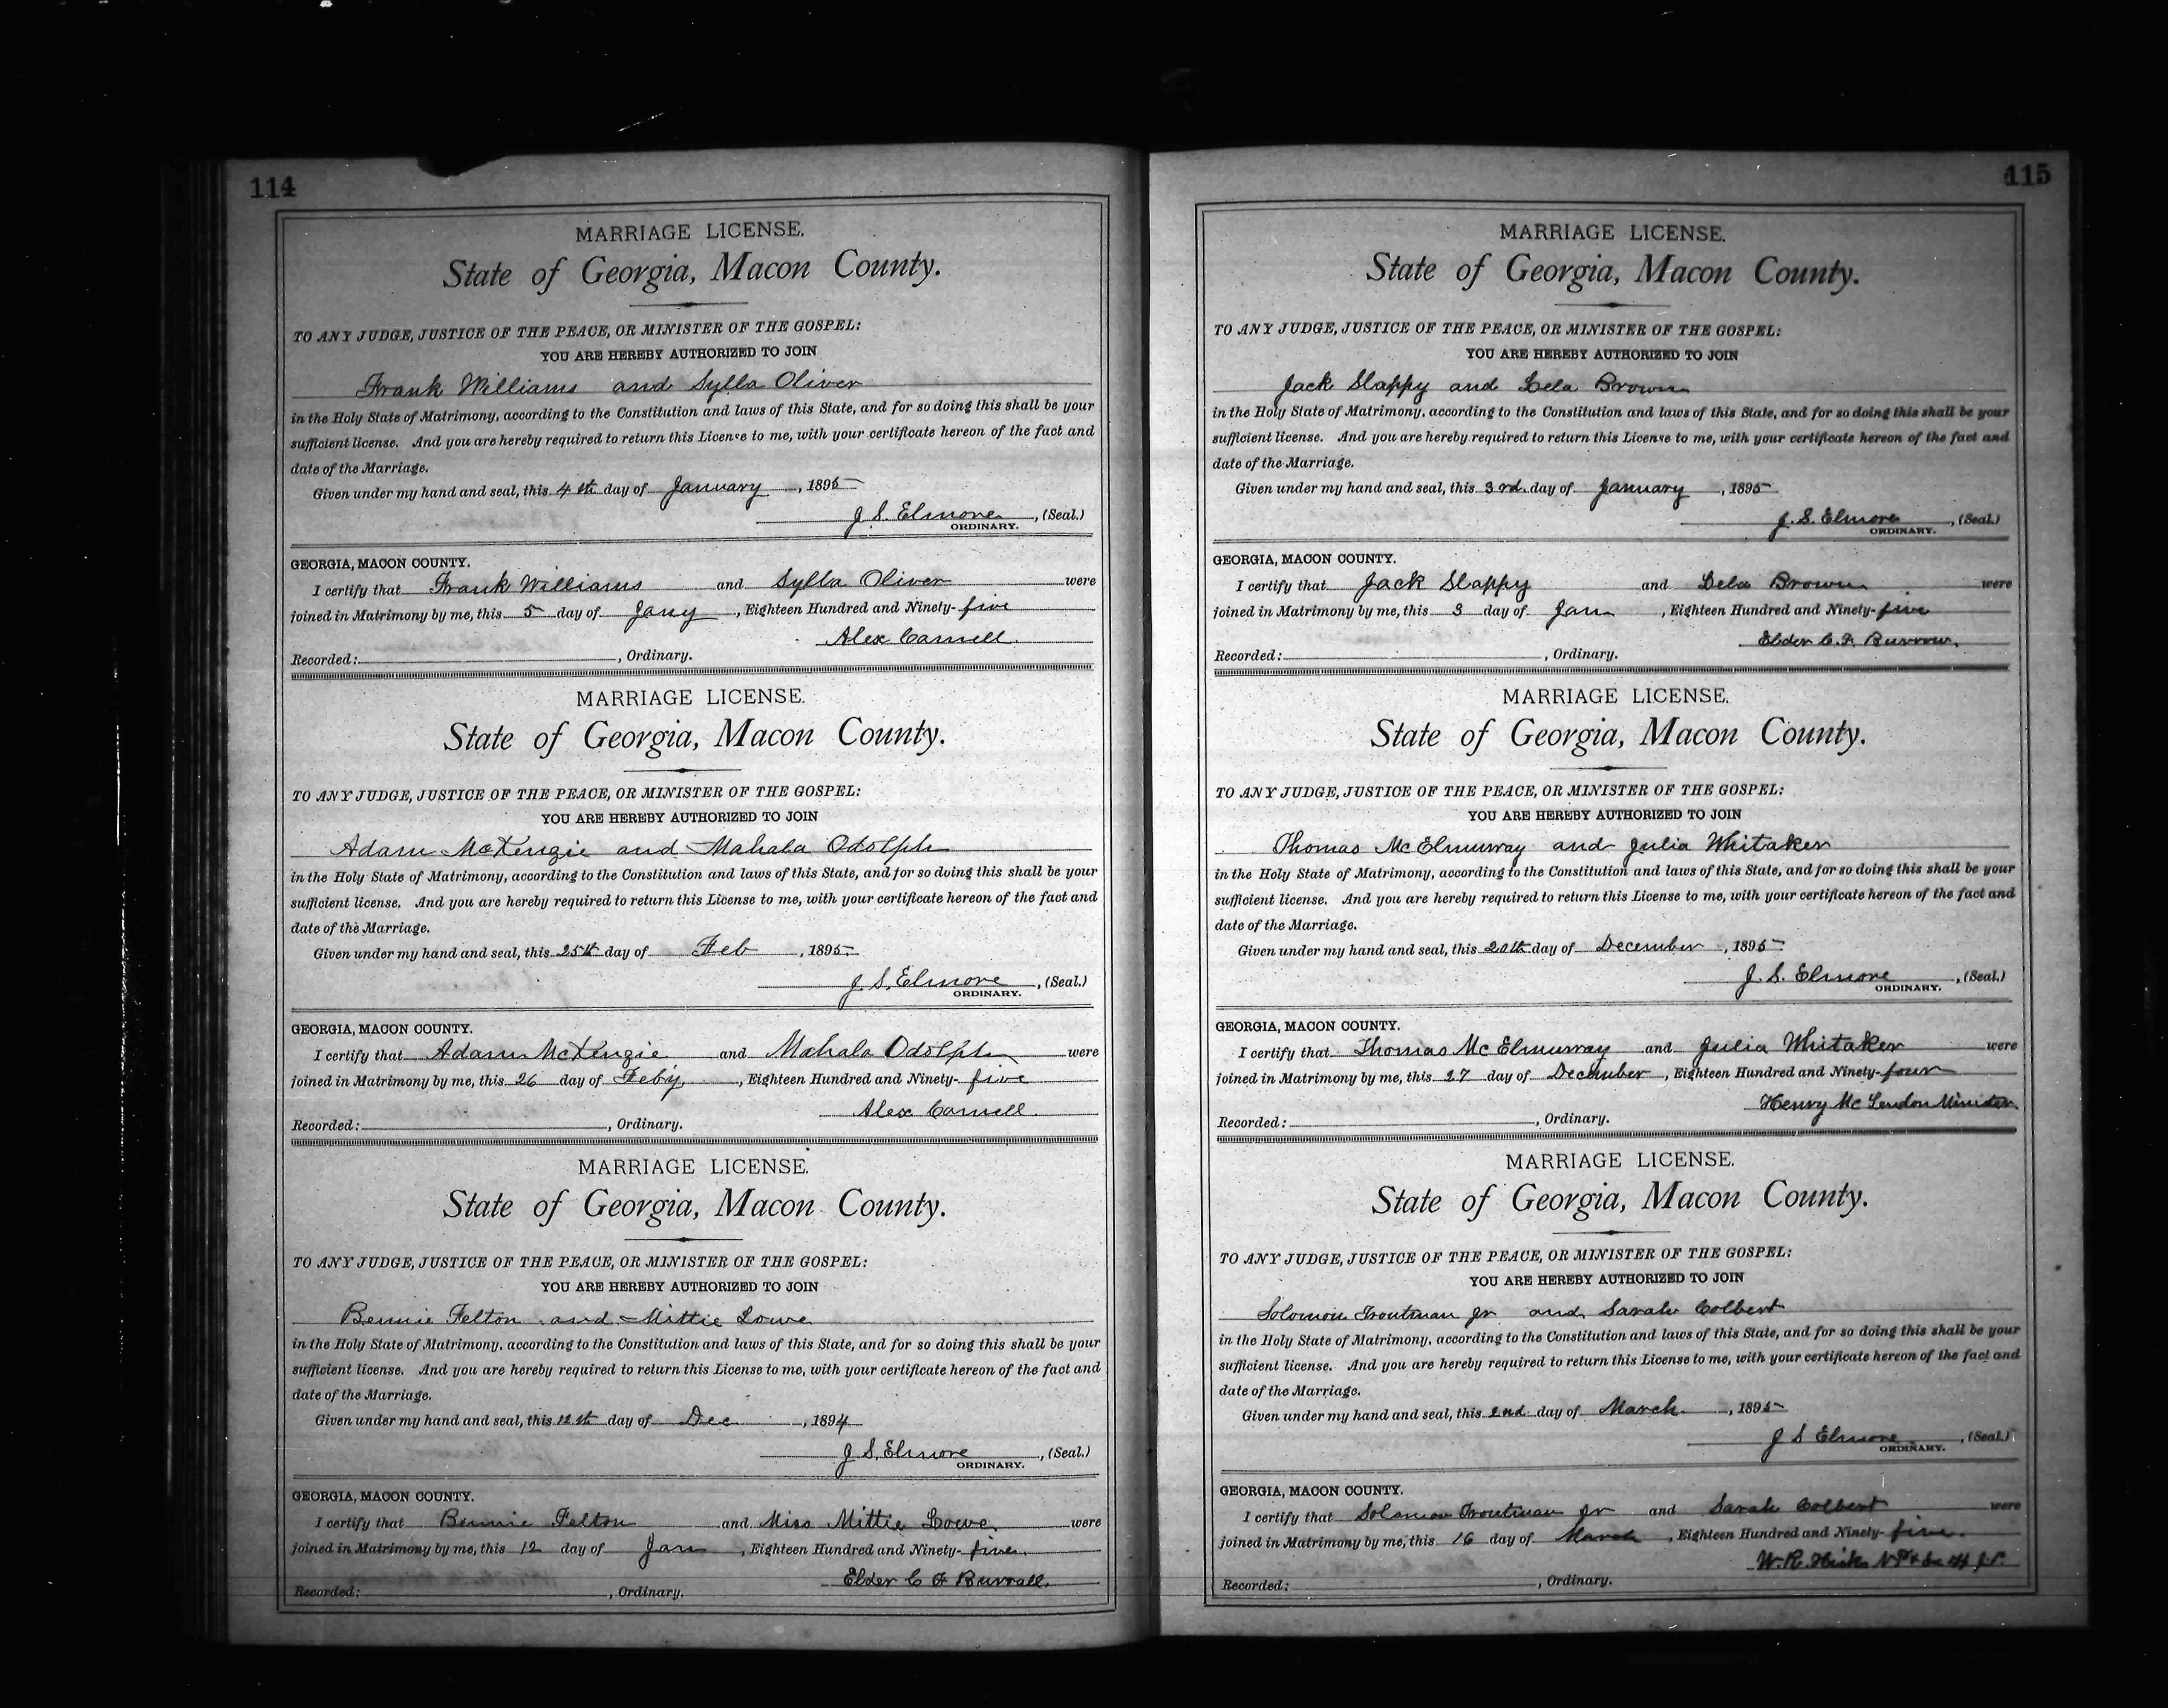 114
MARRIAGE LICENSE.
State of Georgia, Macon County.
TO ANY JUDGE, JUSTICE OF THE PEACE, OR MINISTER OF THE GOSPEL:
YOU ARE HEREBY AUTHORIZED TO JOIN
Frank Williams and Sylla Oliver
in the Holy State of Matrimony, according to the Constitution and laws of this State, and for so doing this shall be your
sufficient license. And you are hereby required to return this License to me, with your certificate hereon of the fact and
date of the Marriage.
Given under my hand and seal, this 4th day of January, 1895
J. S. Elmore, (Seal.)
ORDINARY.
GEORGIA, MACON COUNTY.
I certify that Frank Williams and Sylla Oliver were
joined in Matrimony by me, this 5 day of Jany, Eighteen Hundred and Ninety-five
Alex Carnell
Recorded: , Ordinary.
MARRIAGE LICENSE.
State of Georgia, Macon County.
TO ANY JUDGE, JUSTICE OF THE PEACE, OR MINISTER OF THE GOSPEL:
YOU ARE HEREBY AUTHORIZED TO JOIN
Adam McKenzie and Mahala Odolph
in the Holy State of Matrimony, according to the Constitution and laws of this State, and for so doing this shall be your
sufficient license. And you are hereby required to return this License to me, with your certificate hereon of the fact and
date of the Marriage.
Given under my hand and seal, this 25th day of Feb, 1895
J. S. Elmore, (Seal.)
ORDINARY.
GEORGIA, MACON COUNTY.
I certify that Adam McKenzie and Mahala Odolph were
joined in Matrimony by me, this 26 day of Feby, Eighteen Hundred and Ninety-five
Alex Carnell
Recorded: , Ordinary.
MARRIAGE LICENSE.
State of Georgia, Macon County.
TO ANY JUDGE, JUSTICE OF THE PEACE, OR MINISTER OF THE GOSPEL:
YOU ARE HEREBY AUTHORIZED TO JOIN
Bennie Felton and Mittie Lowe
in the Holy State of Matrimony, according to the Constitution and laws of this State, and for so doing this shall be your
sufficient license. And you are hereby required to return this License to me, with your certificate hereon of the fact and
date of the Marriage.
Given under my hand and seal, this 12th day of Dec, 1894
J S. Elmore, (Seal.)
ORDINARY.
GEORGIA, MACON COUNTY.
I certify that Bennie Felton and Miss Mittie Lowe. were
joined in Matrimony by me, this 12 day of Jan, Eighteen Hundred and Ninety-five.
Elder C F Burrall.
Recorded: , Ordinary.
115
MARRIAGE LICENSE.
State of Georgia, Macon County.
TO ANY JUDGE, JUSTICE OF THE PEACE, OR MINISTER OF THE GOSPEL:
YOU ARE HEREBY AUTHORIZED TO JOIN
Jack Slappy and Lela Brown
in the Holy State of Matrimony, according to the Constitution and laws of this State, and for so doing this shall be your
sufficient license. And you are hereby required to return this License to me, with your certificate hereon of the fact and
date of the Marriage.
Given under my hand and seal, this 3rd. day of January, 1895
J. S. Elmore, (Seal.)
ORDINARY.
GEORGIA, MACON COUNTY.
I certify that Jack Slappy and Lela Brown were
joined in Matrimony by me, this 3 day of Jan, Eighteen Hundred and Ninety-five
Elder C. F. Burrow.
Recorded: , Ordinary.
MARRIAGE LICENSE.
State of Georgia, Macon County.
TO ANY JUDGE, JUSTICE OF THE PEACE, OR MINISTER OF THE GOSPEL:
YOU ARE HEREBY AUTHORIZED TO JOIN
Thomas McElmurray and Julia Whitaker
in the Holy State of Matrimony, according to the Constitution and laws of this State, and for so doing this shall be your
sufficient license. And you are hereby required to return this License to me, with your certificate hereon of the fact and
date of the Marriage.
Given under my hand and seal, this 20th day of December, 1895
J. S. Elmore, (Seal.)
ORDINARY.
GEORGIA, MACON COUNTY.
I certify that Thomas McElmurray and Julia Whitaker were
joined in Matrimony by me, this 27 day of December, Eighteen Hundred and Ninety-four
Henry McLendon Minister.
Recorded: , Ordinary.
MARRIAGE LICENSE.
State of Georgia, Macon County.
TO ANY JUDGE, JUSTICE OF THE PEACE, OR MINISTER OF THE GOSPEL:
YOU ARE HEREBY AUTHORIZED TO JOIN
Solomon Troutman Jr and Sarah Colbert
in the Holy State of Matrimony, according to the Constitution and laws of this State, and for so doing this shall be your
sufficient license. And you are hereby required to return this License to me, with your certificate hereon of the fact and
date of the Marriage.
Given under my hand and seal, this 2nd. day of March, 1895
J S Elmore, (Seal.)
ORDINARY.
GEORGIA, MACON COUNTY.
I certify that Solomon Troutman Jr and Sarah Colbert were
joined in Matrimony by me, this 16 day of March, Eighteen Hundred and Ninety-five.
W. R. Hicks NP & Ex off J.P.
Recorded: , Ordinary.